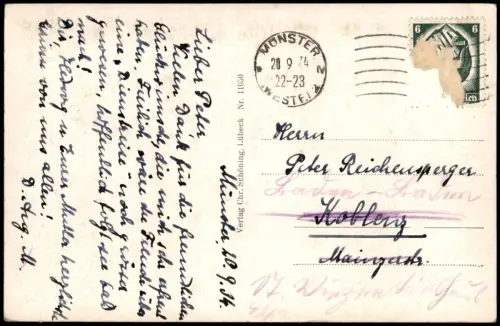 Münster, 20.9.34.
Lieber Peter
Vielen Dank für die freundlichen
Glückwünsche, die mich sehr erfreut
haben. Freilich wäre die Freude über
eine „Dienstreise“ noch grösser
gewesen. Hoffentlich folgt sie bald
nach!
Dir, Hedwig u. Eurer Mutter herzliche
Grüsse von uns allen!
D. Aug. M.
Verlag Chr. Schöning, Lübeck Nr. 11650
MÜNSTER
20 9 34
22-23
(WESTF.) 2
6
6
Herrn
Peter Reichensperger
Baden-Baden
Koblenz
Mainzerstr.
St.